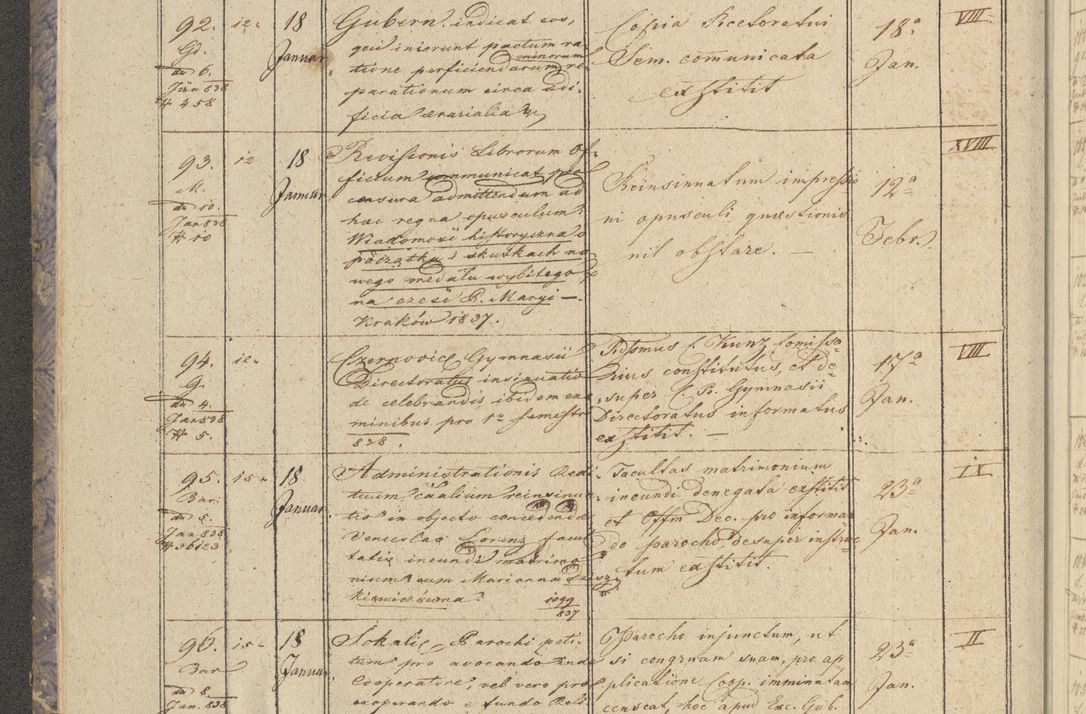 92. 12. 18 Januar
Gub.
de 6.
Jän. 838
# 458
Gubern. indicat eos,
qui inierunt pactum ra
tione perficiendarum minorum re
parationum circa ædi-
ficia ærarialia
Copia Rectoratui
Sem. comunicata
exstitit
18a
Jan.
VIII
93. 12 18
Januar
M.
de 10.
Jan 838
# 10
Revisionis Librorum Of-
ficium communicat pro
censura admittendum ad
hac regna opusculum:
Wiadomość historyczna o
początku i skutkach no
wego medalu wybitego
na cześć B. Maryi —
Kraków 1837.
Reinsinuatum impressio
ni opusculi quæstionis
nil obstare. —
12a
Febr.
XVIII
94. 12. 18
Januar
G.
de 4.
Jan 838
# 5.
Czernovic Gymnasii
Directoratus insinuatio
de celebrandis ibidem exa
minibus pro 1o Semestri
838.
Rdssmus C. Kunz Comissa-
rius constitutus, et de-
super C. R. Gymnasii
Directoratus informatus
exstitit. —
17a
Jan.
VIII
95. 15. 18
Januar.
Bar.
de 8.
Jan 838
# 36123
Administrationis Redi
tuum Cæalium reinsinua
tio in objecto concedendæ
Venceslao Lorenz facul
tatis ineundi matrimo
nium cum Marianna
1099
837
Facultas matrimonium
ineundi denegata exstitit
et Offm Dec. pro informan
do parocho desuper instruc
tum exstitit.
23a
Jan.
IX
96. 15. 18
Januar.
Bar
de 8.
Jan. 838
Sokalic Parochi peti-
tum pro avocando inde
Cooperatore, vel vero pro
cooperando e fundo Reli
Parocho injunctum, ut
si congruam suam, pro ap
plicatione Coop. imminutam
censeat, hoc apud Exc. Gub.
23a
Jan.
II